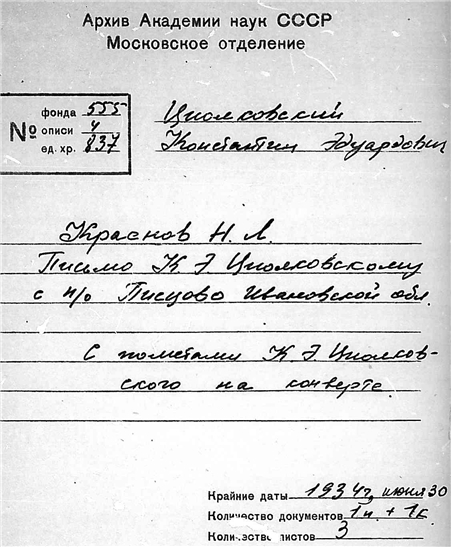 Архив Академии наук СССР
Московское отделение
№
фонда 555
описи 4
ед. хр. 837
Циолковский
Константин Эдуардович
Краснов Н. Л.
Письмо К Э Циолковскому
с п/о Писцово Ивановской обл
С пометами К. Э. Циолков-
ского на конверте.
Крайние даты 1934г, июня 30
Количество документов 1п. + 1к
Количество листов 3